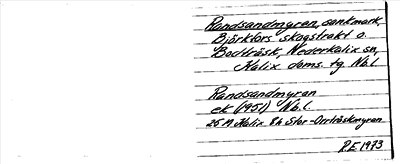 Randsandmyren, sankmark,
Björkfors skogstrakt o.
Bodträsk, Nederkalix sn,
Kalix doms. tg. Nb.l
Randsandmyran
ek (1951) Nb.l.
25 M Kalix 8 h Stor-Orrträskmyran
R.E 1973